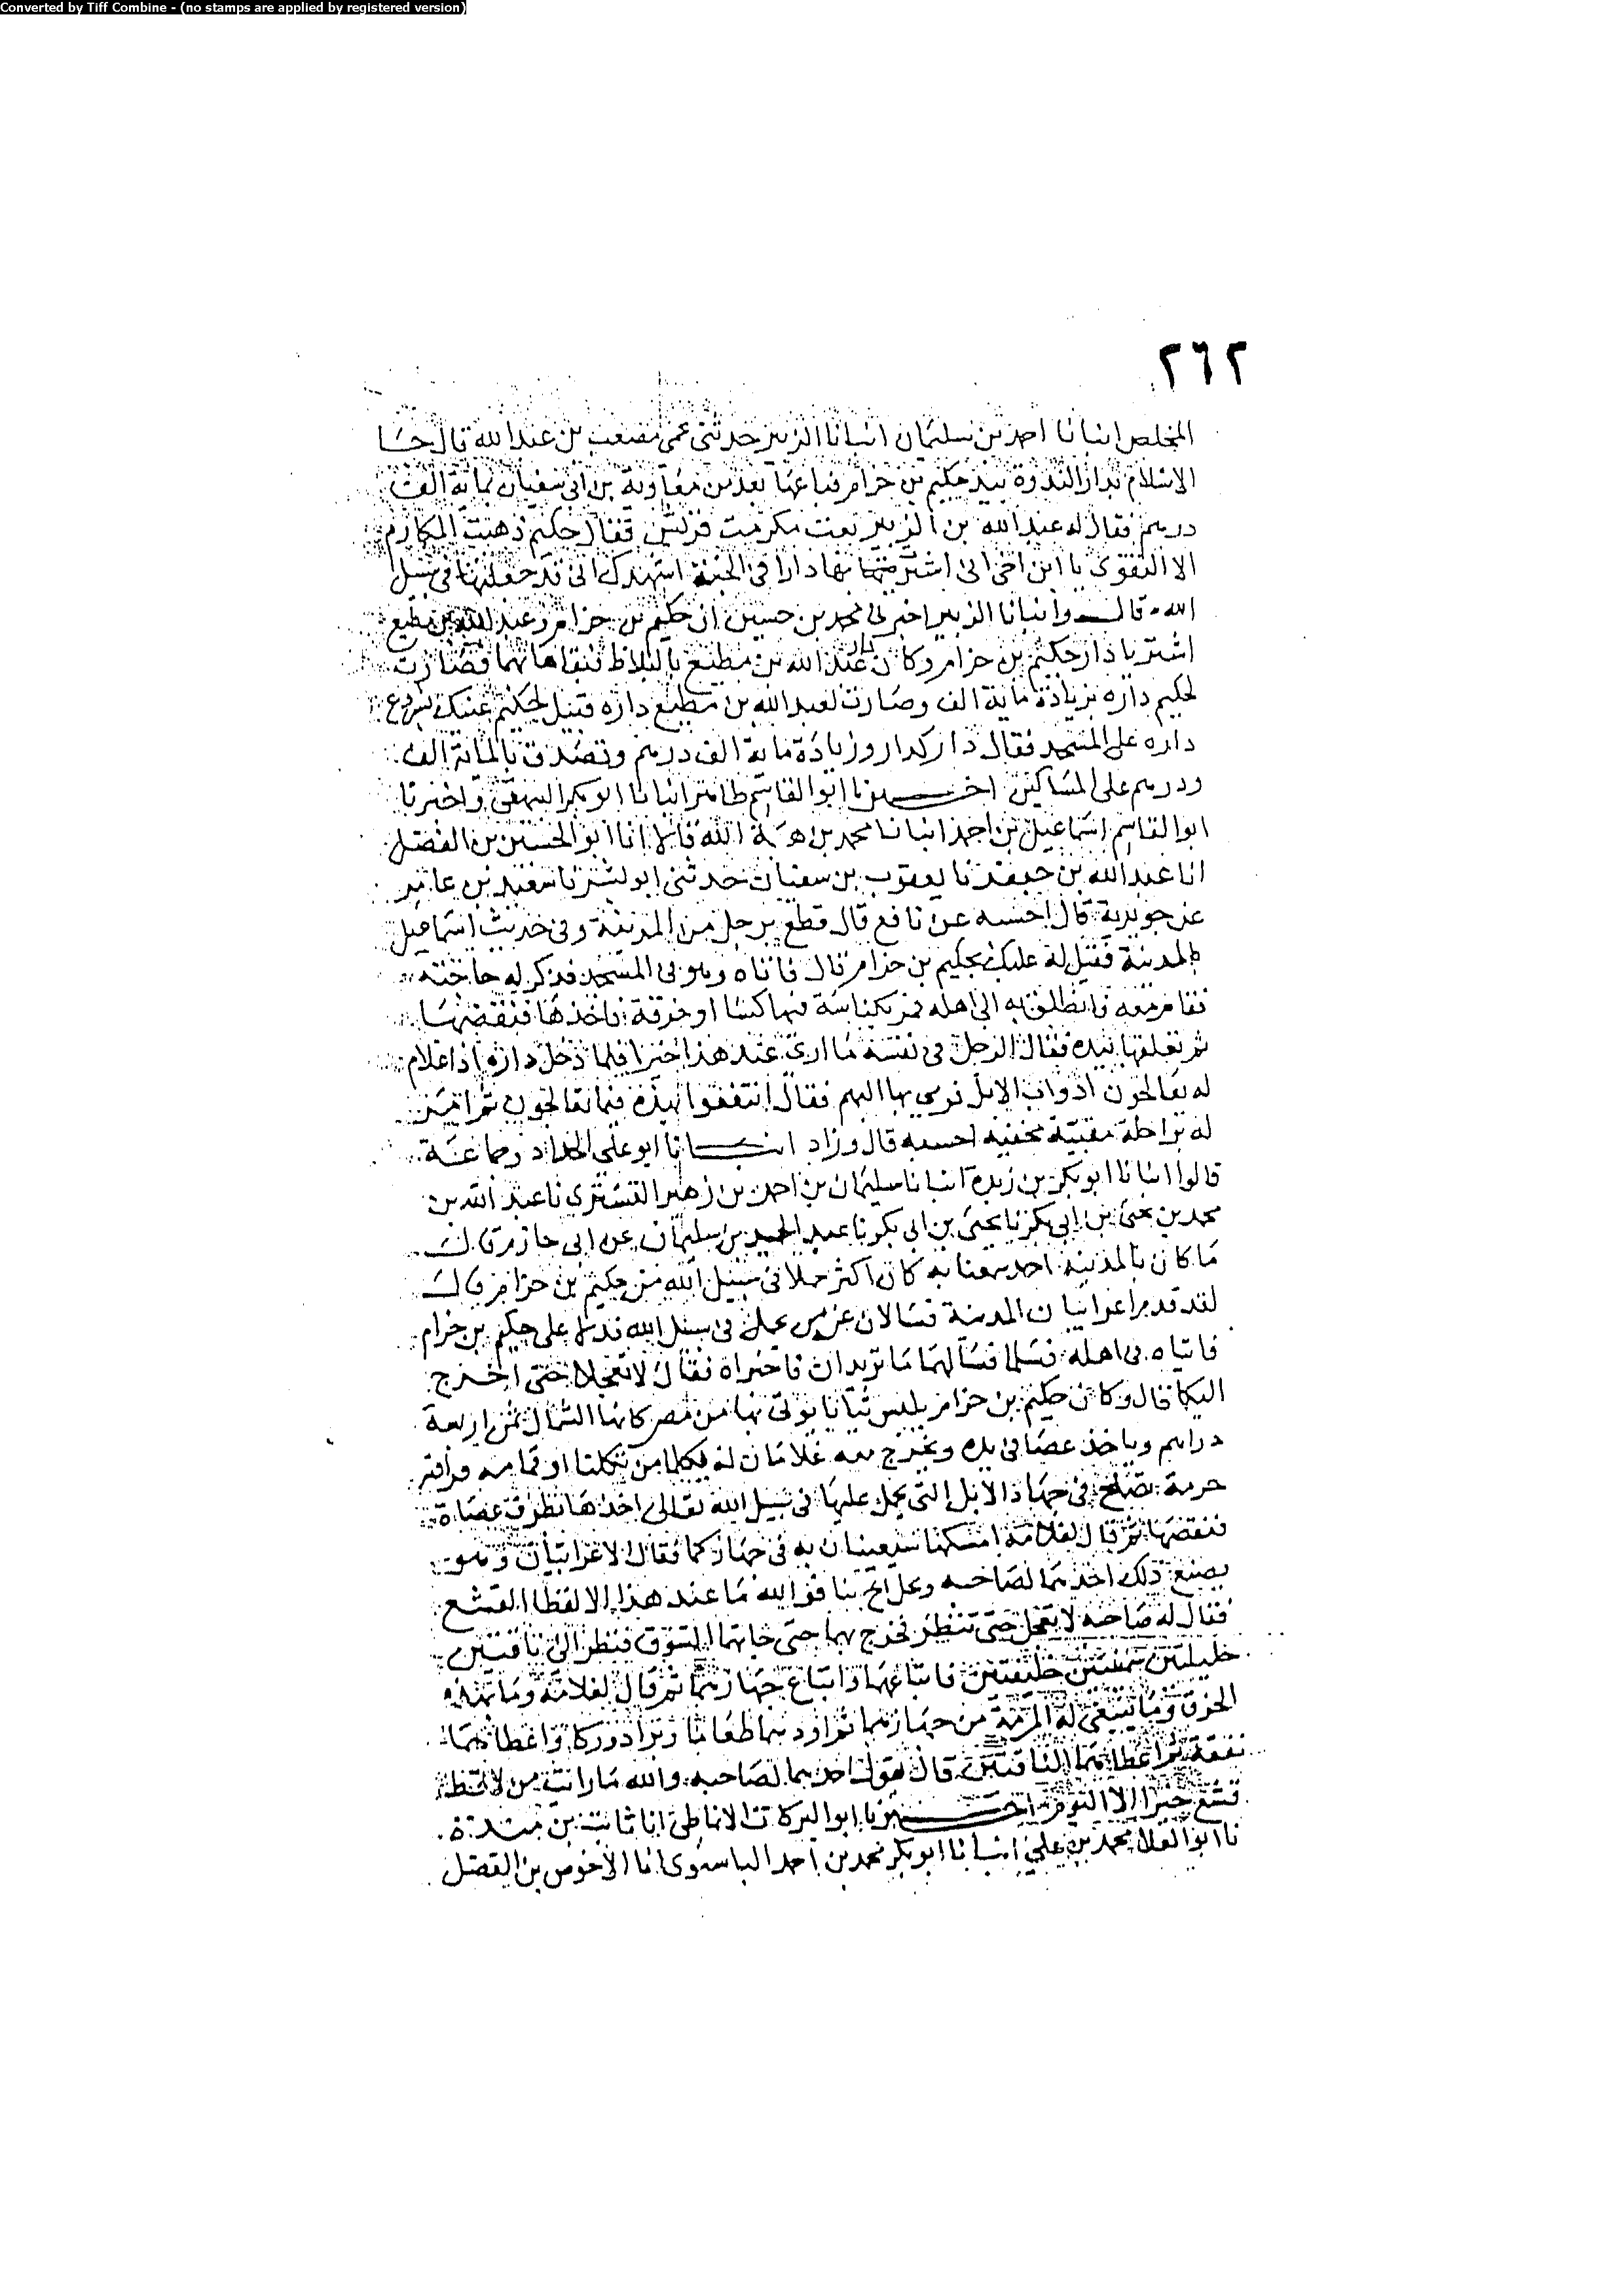 Converted by Tiff Combine - (no stamps are applied by registered version)
٢٦٢
المخلص انبانا احمد بن سليمان انبانا الزبير حدثني عمي مصعب بن عبد الله قال جا
الاسلام ودار الندوة بيد حكيم بن حزام فباعها بعد من معاوية بن ابي سفيان بماية الف
درهم فقال له عبد الله بن الزبير بعت مكرمت قريش فقال حكيم ذهبت المكارم
الا التقوى يا ابن اخي اني اشتريت بها دارا في الجنة اشهدك اني قد جعلتها في سبيل
الله قال وانبانا الزبير اخبرني محمد بن حسين ان حكيم بن حزام وعبد الله بن مطيع
اشتريا دار حكيم بن حزام وكان دار عبد الله بن مطيع بالبلاط فتقاها بهما فصارت
لحكيم داره بزيادة ماية الف وصارت لعبد الله بن مطيع داره فقيل لحكيم غبنك بشروع
داره على المسجد فقال دار كدار وزيادة ماية الف درهم وتصدق بالماية الف
ودرهم على المساكين اخبرنا ابو القاسم ظاهر انبانا ابو بكر البيهقي واخبرنا
ابو القاسم اسماعيل بن احمد انبانا محمد بن هبة الله قالا انا ابو الحسين بن الفضل
انا عبد الله بن جعفر نا يعقوب بن سفيان حدثني ابو بشر نا سعيد بن عامر
عن جويرية قال احسبه عن نافع قال قطع برجل من المدينة وفي حديث اسماعيل
بالمدينة فقيل له عليك بحكيم بن حزام قال فاتاه وهو في المسجد فذكر له حاجته
فقام معه فانطلق به الى اهله فمر بكناسة فيها كسا او خرقة فاخذها فنفضها
ثم تعلقها بيده فقال الرجل في نفسه ما ارى عند هذا خيرا فلما دخل داره اذا غلام
له يعالجون ادوات الابل فرمى بها اليهم فقال انتفعوا بهذه فيما تعالجون ثم امر
له براحلة مقتبة محقبة احسبه قال وزاد انبانا ابو علي الحداد وجماعة
قالوا انبانا ابو بكر بن زيدة انبانا سليمان بن احمد بن زهير التستري نا عبد الله بن
محمد بن يحيى بن ابي بكر نا يحيى بن ابي بكر نا عبد الحميد بن سليمان عن ابي حازم قال
ما كان بالمدينة احد سمعنا به كان اكثر حملا في سبيل الله من حكيم بن حزام قال
لقد قدم اعرابيان المدينة فسالان عن من يحمل في سبيل الله فدلا على حكيم بن حزام
فاتياه في اهله فسلما فسالهما ما تريدان فاخبراه فقال لا تعجلا حتى اخرج
اليكما قال وكان حكيم بن حزام يلبس ثيابا يوتى بها من مصر كانها الشمال ثمن اربعة
دراهم وياخذ عصا في يده ويخرج معه غلامان له فكلما مر بكناسة او قمامة فراى
خرقة تصلح في جهاز الابل التي يحمل عليها في سبيل الله تعالى اخذها بطرف عصاه
فنفضها ثم قال لغلامه امسكها تستعينان به في جهازكما فقال الاعرابيان وهو
يصنع ذلك احدهما لصاحبه ويحك انج بنا فوالله ما عند هذا الا لقط القشع
فقال له صاحبه لا تعجل حتى تنظر فخرج بهما حتى جا بهما السوق فنظر الى ناقتين
جليلتين سمينتين خلفتين فابتاعهما وابتاع جهازهما ثم قال لغلامه وما بهذه
الخرق وما ينبغي له المرمة من جهازهما ثم اود بهما طعاما وبرا وودكا واعطاهما
نفقة ثم اعطاهما الناقتين قال يقول احدهما لصاحبه والله ما رايت من لاقط
قشع خيرا الا اليوم اخبرنا ابو البركات الانماطي انا ثابت بن بندار
نا ابو العلا محمد بن علي انبانا ابو بكر محمد بن احمد البابسيري انا الاحوص بن الفضل